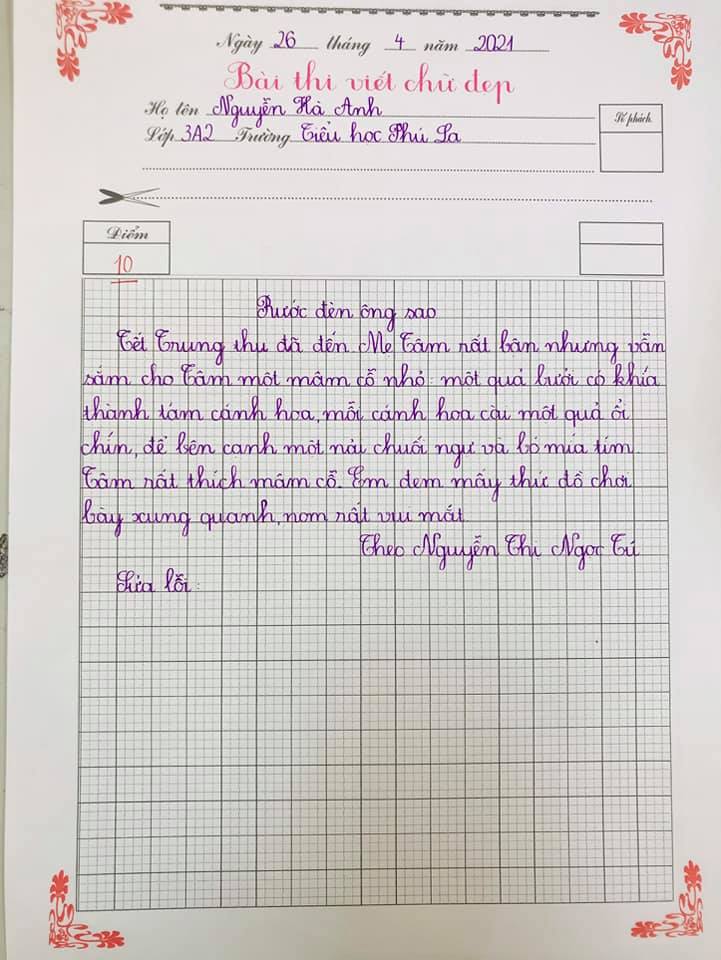 Ngày 26 tháng 4 năm 2021
Bài thi viết chữ đẹp
Họ tên Nguyễn Hà Anh
K phách
Lớp 3A2 Trường Tiểu học Phú La
Điểm
10
Rước đèn ông sao
Tết Trung thu đã đến Mẹ Tâm rất bận nhưng vẫn
sắm cho Tâm một mâm cỗ nhỏ: một quả bưởi có khía
thành tám cánh hoa, mỗi cánh hoa cài một quả ổi
chín, để bên cạnh một nải chuối ngự và bó mía tím.
Tâm rất thích mâm cỗ. Em đem mấy thứ đồ chơi
bày xung quanh, nom rất vui mắt
Theo Nguyễn Thị Ngọc Tú
Sửa lỗi: